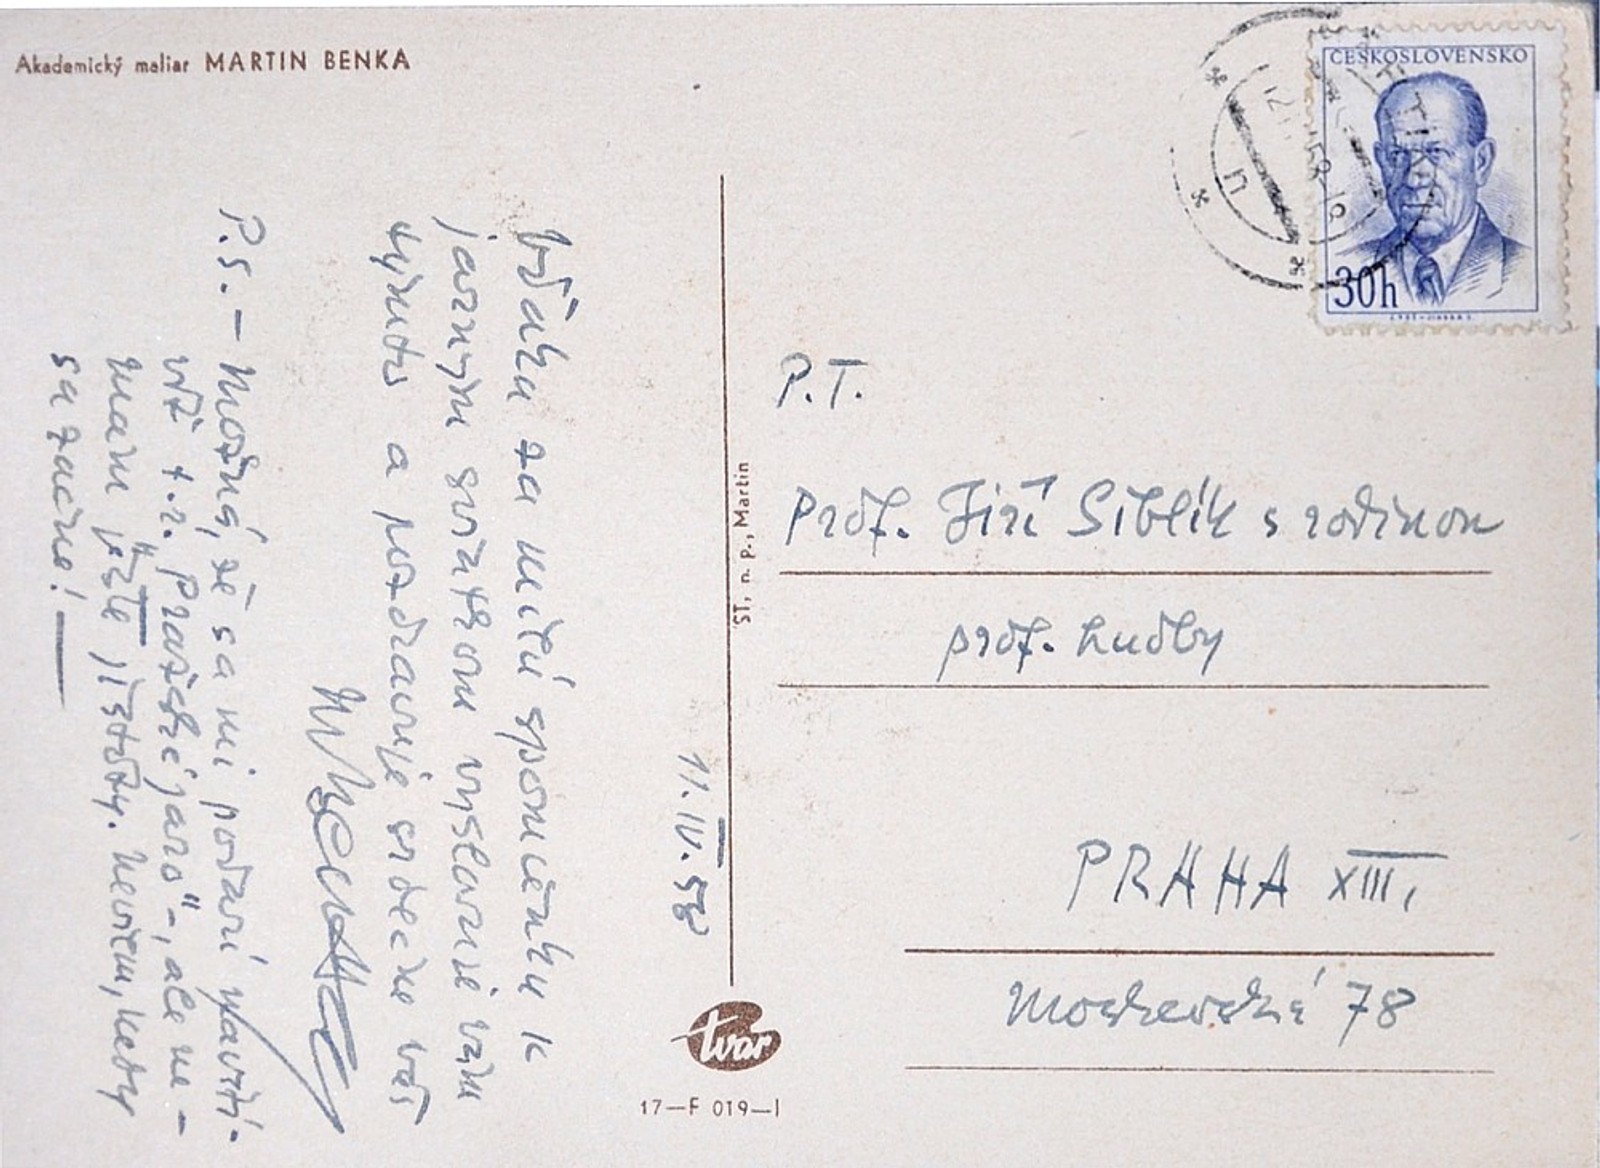 Akademický maliar MARTIN BENKA
Vďaka za milú spomienku k
jarným sviatkom vyslovené vám
týmto a pozdravuje srdečne váš
P.S. – Možná, že sa mi podarí navští-
viť t.r. „Pražské jaro“ -, ale ne-
mám ješte jistoty. Neviem, kedy
sa začne! —
11. IV. 58
ST, n. p., Martin
tvar
17–F 019–I
ČESKOSLOVENSKO
30h
P.T.
Prof. Jiří Siblík s rodinou
prof. hudby
PRAHA XIII,
Moskevská 78